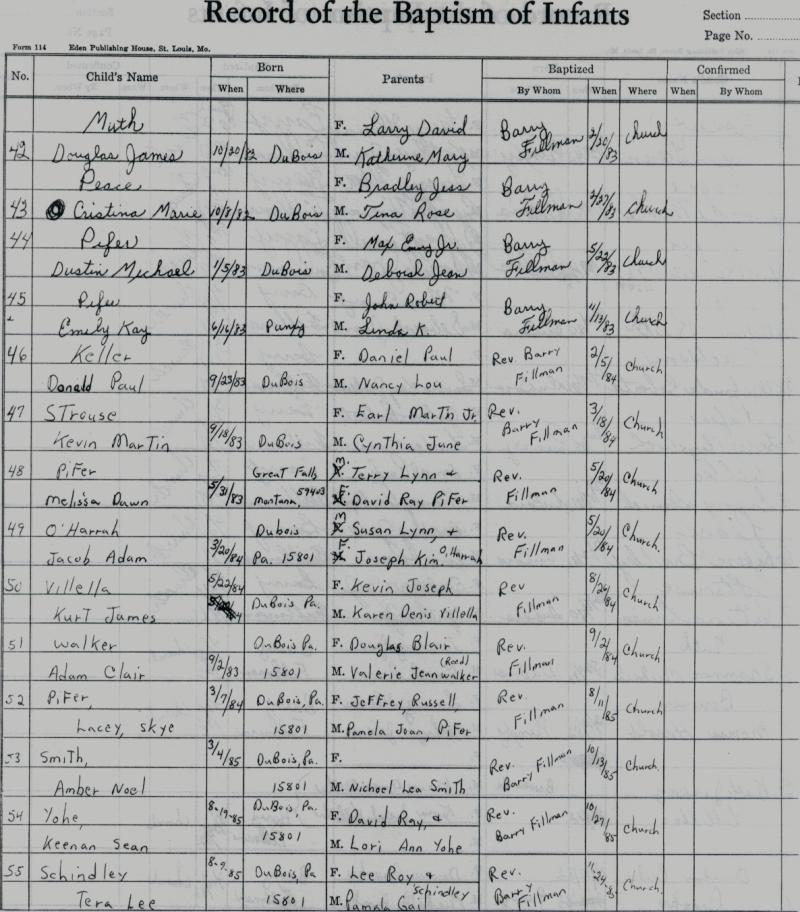 Record of the Baptism of Infants
Section
Page No.
Form 114 Eden Publishing House, St. Louis, Mo.
No. Child's Name Born Parents Baptized Confirmed
When Where By Whom When Where When By Whom
Muth F. Larry David Barry Fillman 2/20/83 Church
42 Douglas James 10/20/82 DuBois M. Katherine Mary
Peace F. Bradley Jess Barry Fillman 2/27/83 Church
43 Cristina Marie 10/8/82 DuBois M. Tina Rose
44 Pifer F. Max Emory Jr. Barry Fillman 5/22/83 Church
Dustin Michael 1/5/83 DuBois M. Deborah Jean
45 Pifer F. John Robert Barry Fillman /13/83 Church
Emily Kay 6/16/83 Punxy M. Linda K.
46 Keller F. Daniel Paul Rev. Barry Fillman 2/5/84 Church
Donald Paul 9/23/83 DuBois M. Nancy Lou
47 STrouse F. Earl MarTn Jr Rev. Barry Fillman 3/18/84 Church
Kevin MarTin 9/18/83 DuBois M. Cynthia June
48 PiFer Great Falls M. Terry Lynn & Rev. Fillman 5/20/84 Church
Melissa Dawn 5/31/83 Montana, 59403 F. David Ray PiFer
49 O'Harrah Dubois M Susan Lynn, & Rev. Fillman 5/20/84 Church.
Jacob Adam 3/20/84 Pa. 15801 F. Joseph Kim O'Harrah
50 Villella 5/22/84 DuBois Pa. F. Kevin Joseph Rev Fillman 8/26/84 Church
Kurt James M. Karen Denis Villella
51 Walker DuBois Pa. F. Douglas Blair Rev. Fillman 9/2/84 Church
Adam Clair 9/2/83 15801 M. Valerie Jean (Reed) Walker
52 PiFer, 3/7/84 DuBois, Pa. F. JeFFrey, Russell, Rev. Fillman 8/11/85 Church
Lacey, Skye 15801 M. Pamela Joan, PiFer
53 Smith, 3/4/85 DuBois, Pa. F. Rev. Barry Fillman 10/13/85 Church.
Amber Noel 15801 M. Nichoel Lea Smith
54 Yohe, 8-19-85 DuBois, Pa. F. David Ray, & Rev. Barry Fillman 10/27/85 Church
Keenan Sean 15801 M. Lori Ann Yohe
55 Schindley 8-9-85 DuBois, Pa F. Lee Roy & Rev. Barry Fillman 11-24-85 Church.
Tera Lee 15801 M. Pamala Gail Schindley